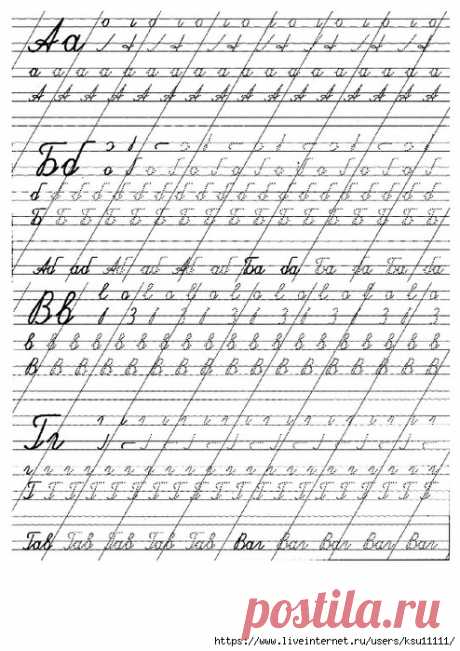 Аа
а а а а а а а а а а а а а а а а а а
А А А А А А А А А А А А А А А А
Бб
б б б б б б б б б б б б б б б б б б
Б Б Б Б Б Б Б Б Б Б Б Б Б Б Б Б Б
Аб аб Аб аб Аб аб Ба ба Ба ба Ба ба
Вв
в в в в в в в в в в в в в в в в в в
В В В В В В В В В В В В В В В В В
Гг
г г г г г г г г г г г г г г г г г г г г
Г Г Г Г Г Г Г Г Г Г Г Г Г Г Г Г Г Г
Гав Гав Гав Гав Гав Ваг Ваг Ваг Ваг Ваг
postila.ru
https://www.liveinternet.ru/users/ksu11111/